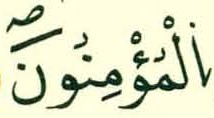 ا۬لْمُؤْمِنُونَۖ